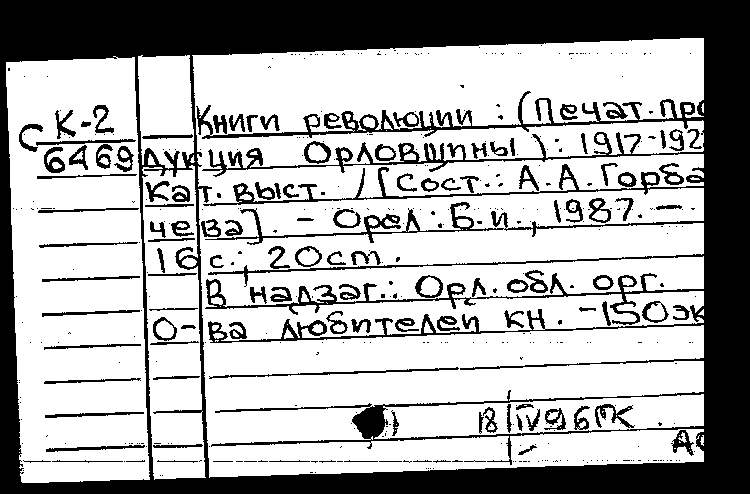 К-2 Книги революции : (Печат. про
С 6469 дукция Орловщины) : 1917-192
Кат. выст. / [Сост.: А.А. Горба
чева]. - Орел : Б.и., 1987. —
16 с.; 20 ст.
В надзаг.: Орл. обл. орг.
О-ва любителей кн. - 150 эк
18/IV96